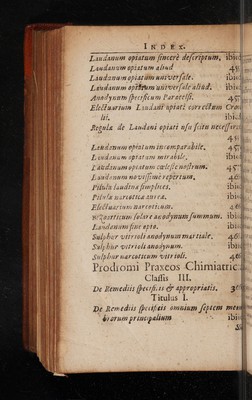 INDEX.
Laudanum opiatum sincerè descriptum, ibid
Laudanum opiatum aliud
Laudanum opiatum universale. ibid
Laudanum opiatum universale aliud. ibid
Anodynum specificum Paracelsi. 45
Electuarium Laudani opiati correctum Cro
lii. ibid
Regulæ de Laudani opiati usu scitu necessariæ
Laudanum opiatum incomparabile. 45
Laudanum opiatum mirabile. ibid
Laudanum opiatum cœleste nostrum. 45
Laudanum novissimè repertum. ibid
Pilulæ laudinæ simplices. ibid
Pilula narcotica aurea. ibid
Electuarium narcoticum.
solare anodynum summum. ibid
Laudanum sine opio.
Sulphur vitrioli anodynum martiale. 46
Sulphur vitrioli anodynum. ibid
Sulphur narcoticum vitrioli. 46
Prodromi Praxeos Chimiatricæ
Classis III.
De Remediis specificis & appropriatis. 3
Titulus I.
De Remediis specificis omnium septem mem
brorum principalium ibid